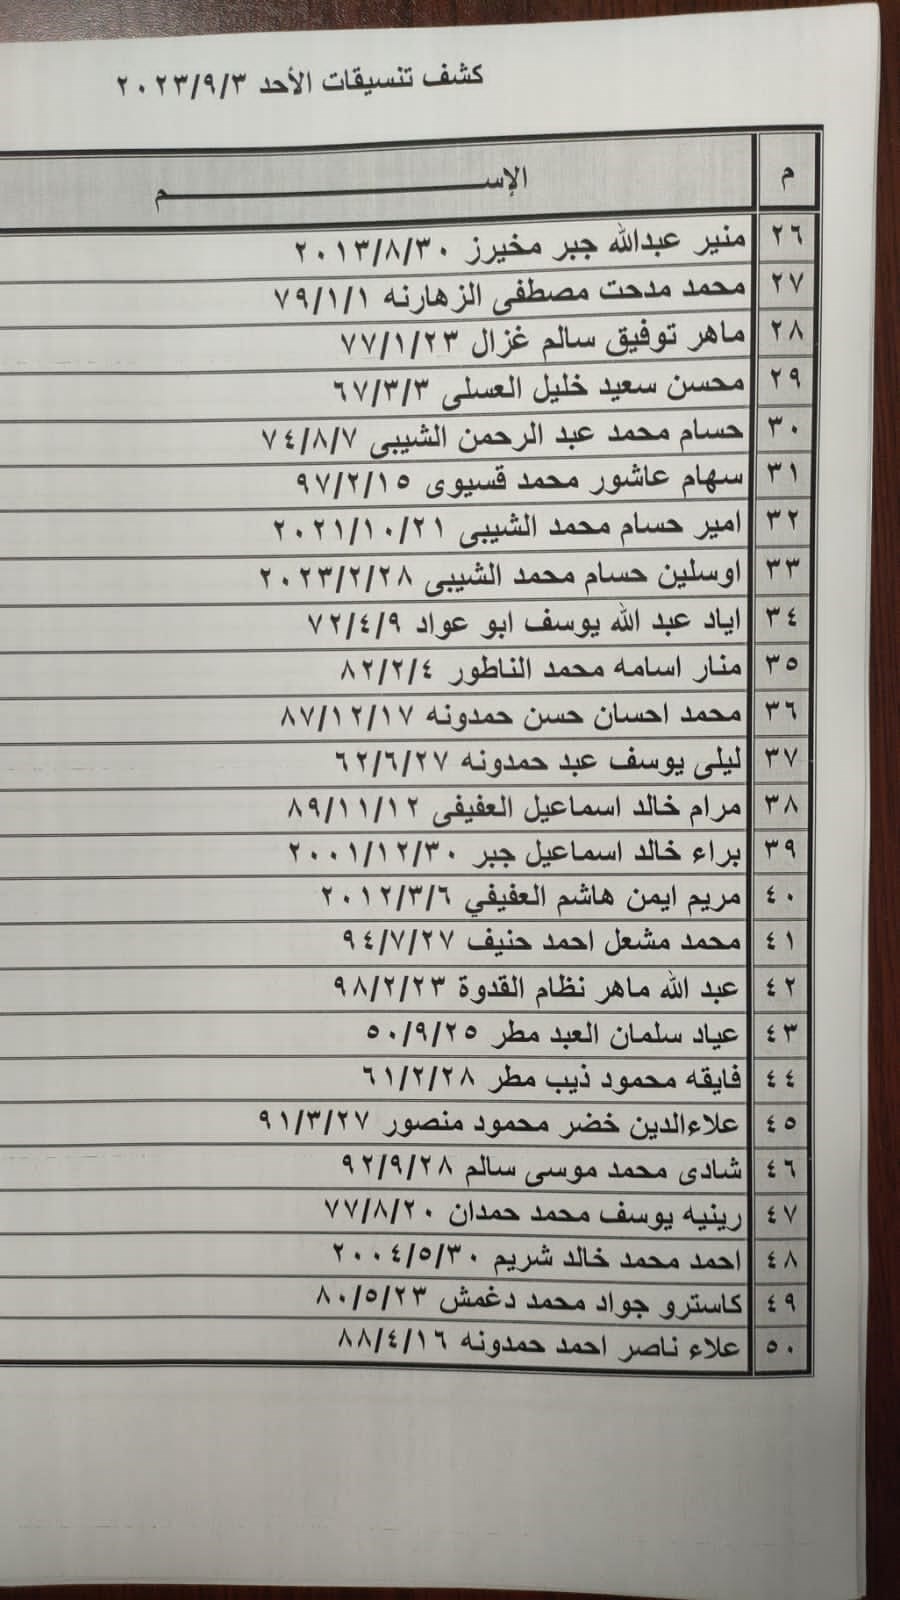 كشف تنسيقات الأحد ٢٠٢٣/٩/٣
م الإســـــــــــم
٢٦ منير عبدالله جبر مخيرز ٢٠١٣/٨/٣٠
٢٧ محمد مدحت مصطفى الزهارنه ٧٩/١/١
٢٨ ماهر توفيق سالم غزال ٧٧/١/٢٣
٢٩ محسن سعيد خليل العسلى ٦٧/٣/٣
٣٠ حسام محمد عبد الرحمن الشيبى ٧٤/٨/٧
٣١ سهام عاشور محمد قسيوى ٩٧/٢/١٥
٣٢ امير حسام محمد الشيبى ٢٠٢١/١٠/٢١
٣٣ اوسلين حسام محمد الشيبى ٢٠٢٣/٢/٢٨
٣٤ اياد عبد الله يوسف ابو عواد ٧٢/٤/٩
٣٥ منار اسامه محمد الناطور ٨٢/٢/٤
٣٦ محمد احسان حسن حمدونه ٨٧/١٢/١٧
٣٧ ليلى يوسف عبد حمدونه ٦٢/٦/٢٧
٣٨ مرام خالد اسماعيل العفيفى ٨٩/١١/١٢
٣٩ براء خالد اسماعيل جبر ٢٠٠١/١٢/٣٠
٤٠ مريم ايمن هاشم العفيفي ٢٠١٢/٣/٦
٤١ محمد مشعل احمد حنيف ٩٤/٧/٢٧
٤٢ عبد الله ماهر نظام القدوة ٩٨/٢/٢٣
٤٣ عياد سلمان العبد مطر ٥٠/٩/٢٥
٤٤ فايقه محمود ذيب مطر ٦١/٢/٢٨
٤٥ علاءالدين خضر محمود منصور ٩١/٣/٢٧
٤٦ شادى محمد موسى سالم ٩٢/٩/٢٨
٤٧ رينيه يوسف محمد حمدان ٧٧/٨/٢٠
٤٨ احمد محمد خالد شريم ٢٠٠٤/٥/٣٠
٤٩ كاسترو جواد محمد دغمش ٨٠/٥/٢٣
٥٠ علاء ناصر احمد حمدونه ٨٨/٤/١٦